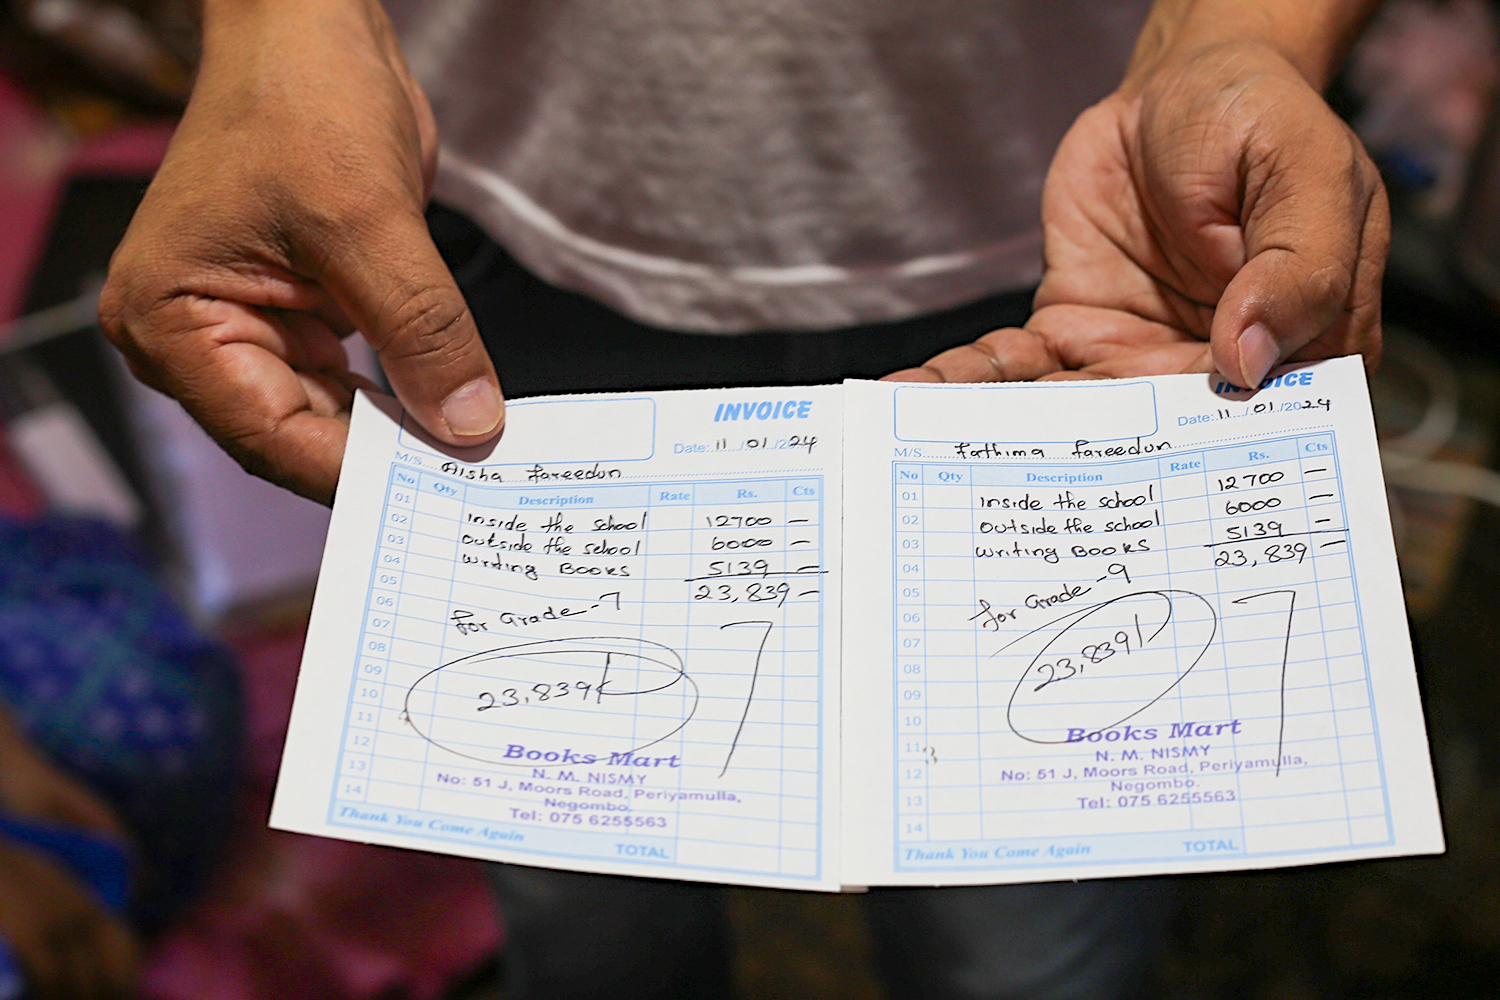 INVOICE
Date: 11/01/2024
M/S. Aisha Fareedun
No Qty Description Rate Rs. Cts
01 Inside the school 12700 —
02 outside the school 6000 —
03 writing Books 5139 —
04 23,839 —
05 for Grade - 7
06
07
08
09 23,839/
10
11
12
13
14
Books Mart
N. M. NISMY
No: 51 J, Moors Road, Periyamulla,
Negombo.
Tel: 075 6255563
Thank You Come Again TOTAL
INVOICE
Date: 11/01/2024
M/S. Fathima Fareedun
No Qty Description Rate Rs. Cts
01 Inside the school 12700 —
02 outside the school 6000 —
03 writing Books 5139 —
04 23,839 —
05 for Grade - 9
06
07
08 23,839/
09
10
11
12
13
14
Books Mart
N. M. NISMY
No: 51 J, Moors Road, Periyamulla,
Negombo.
Tel: 075 6255563
Thank You Come Again TOTAL